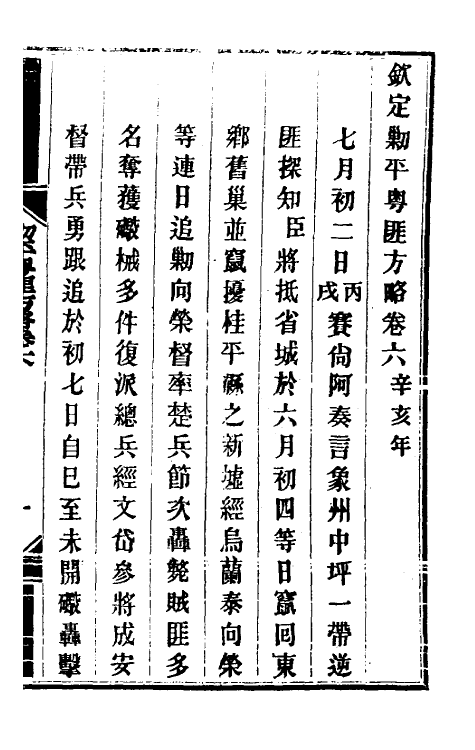 欽定勦平粵匪方略卷六辛亥年
七月初二日丙戌賽尚阿奏言象州中坪一帶逆
匪探知臣將抵省城於六月初四等日竄回東
鄉舊巢並竄擾桂平縣之新墟經烏蘭泰向榮
等連日追勦向榮督率楚兵節次轟斃賊匪多
名奪獲礮械多件復派總兵經文岱參將成安
督帶兵勇跟追於初七日自巳至未開礮轟擊